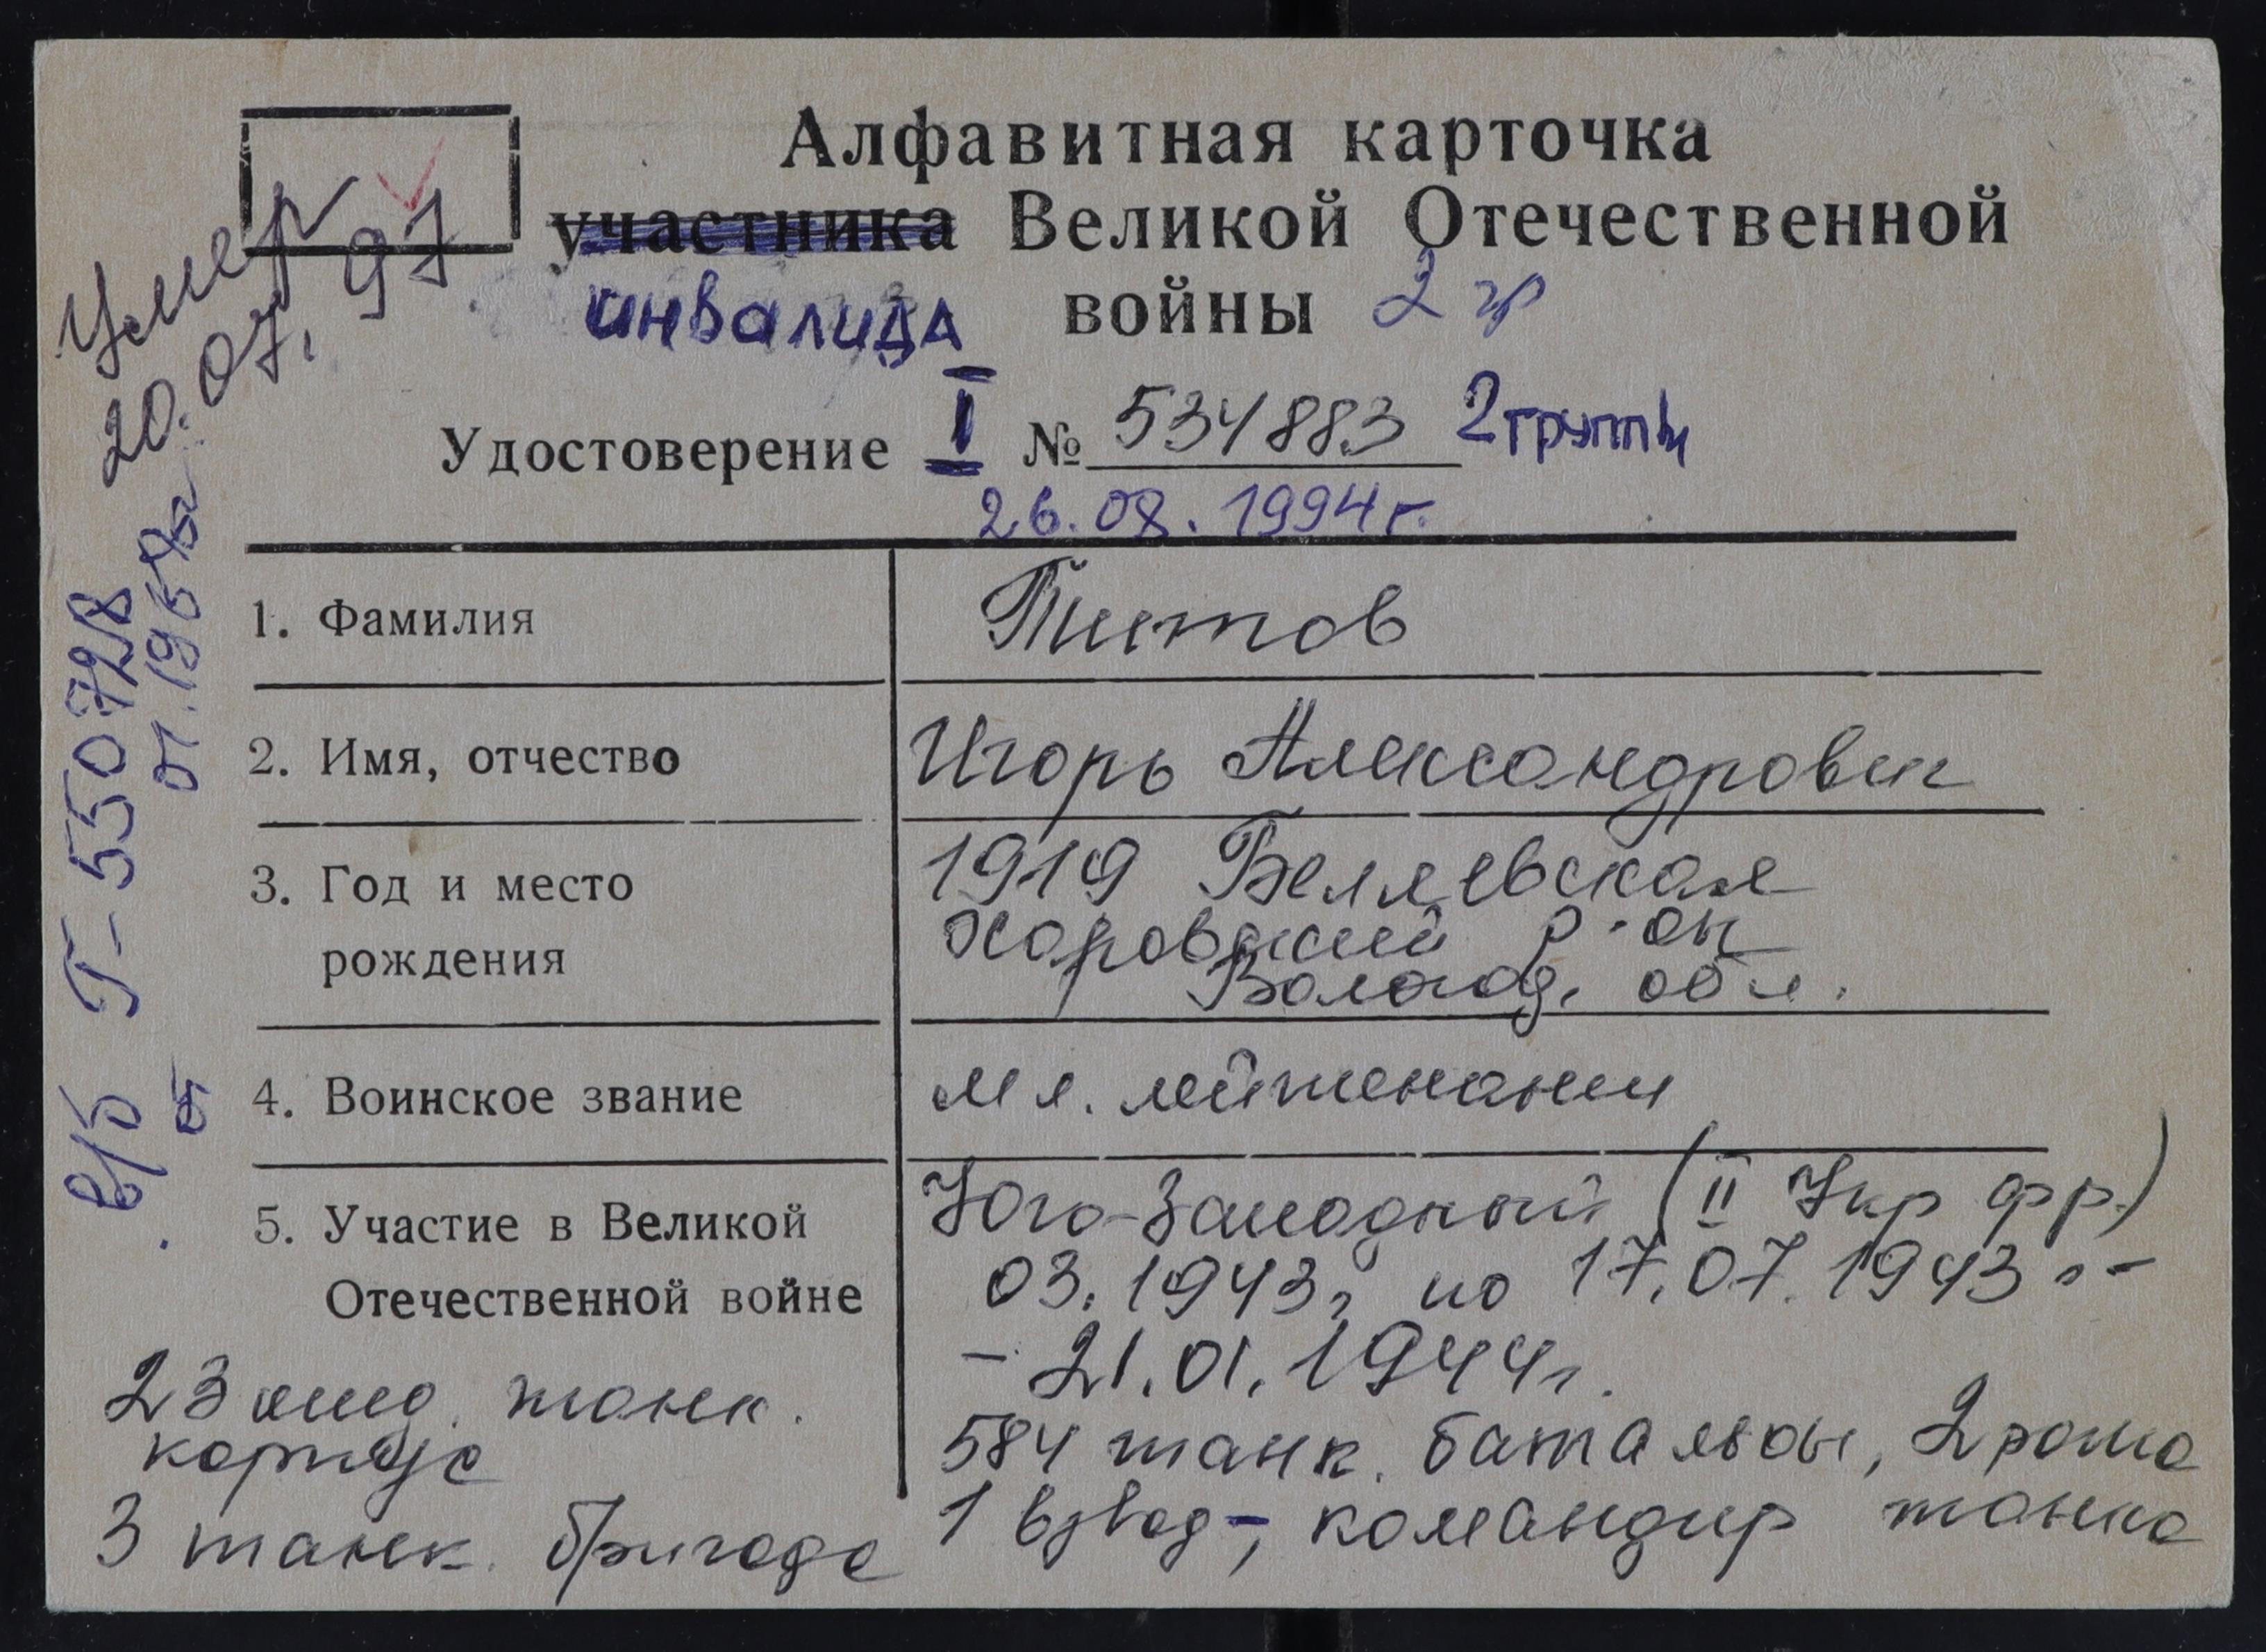 Умер
20.07.97
Алфавитная карточка
участника Великой Отечественной
инвалида войны 2 гр
Удостоверение I № 534883 2 группы
26.08.1994г.
в/б Г-550728
от
1. Фамилия Титов
2. Имя, отчество Игорь Александрович
3. Год и место 1919 Беляевская
Харовский р-он
рождения Волог. обл.
4. Воинское звание мл. лейтенант
5. Участие в Великой Юго-Западный (II Укр фр.)
Отечественной войне 03.1943г по 17.07.1943г-
-21.01.1944г.
23 танк. 584 танк. батальон, 2 рота
корпус
3 танк. бригада 1 взвод-, командир танка